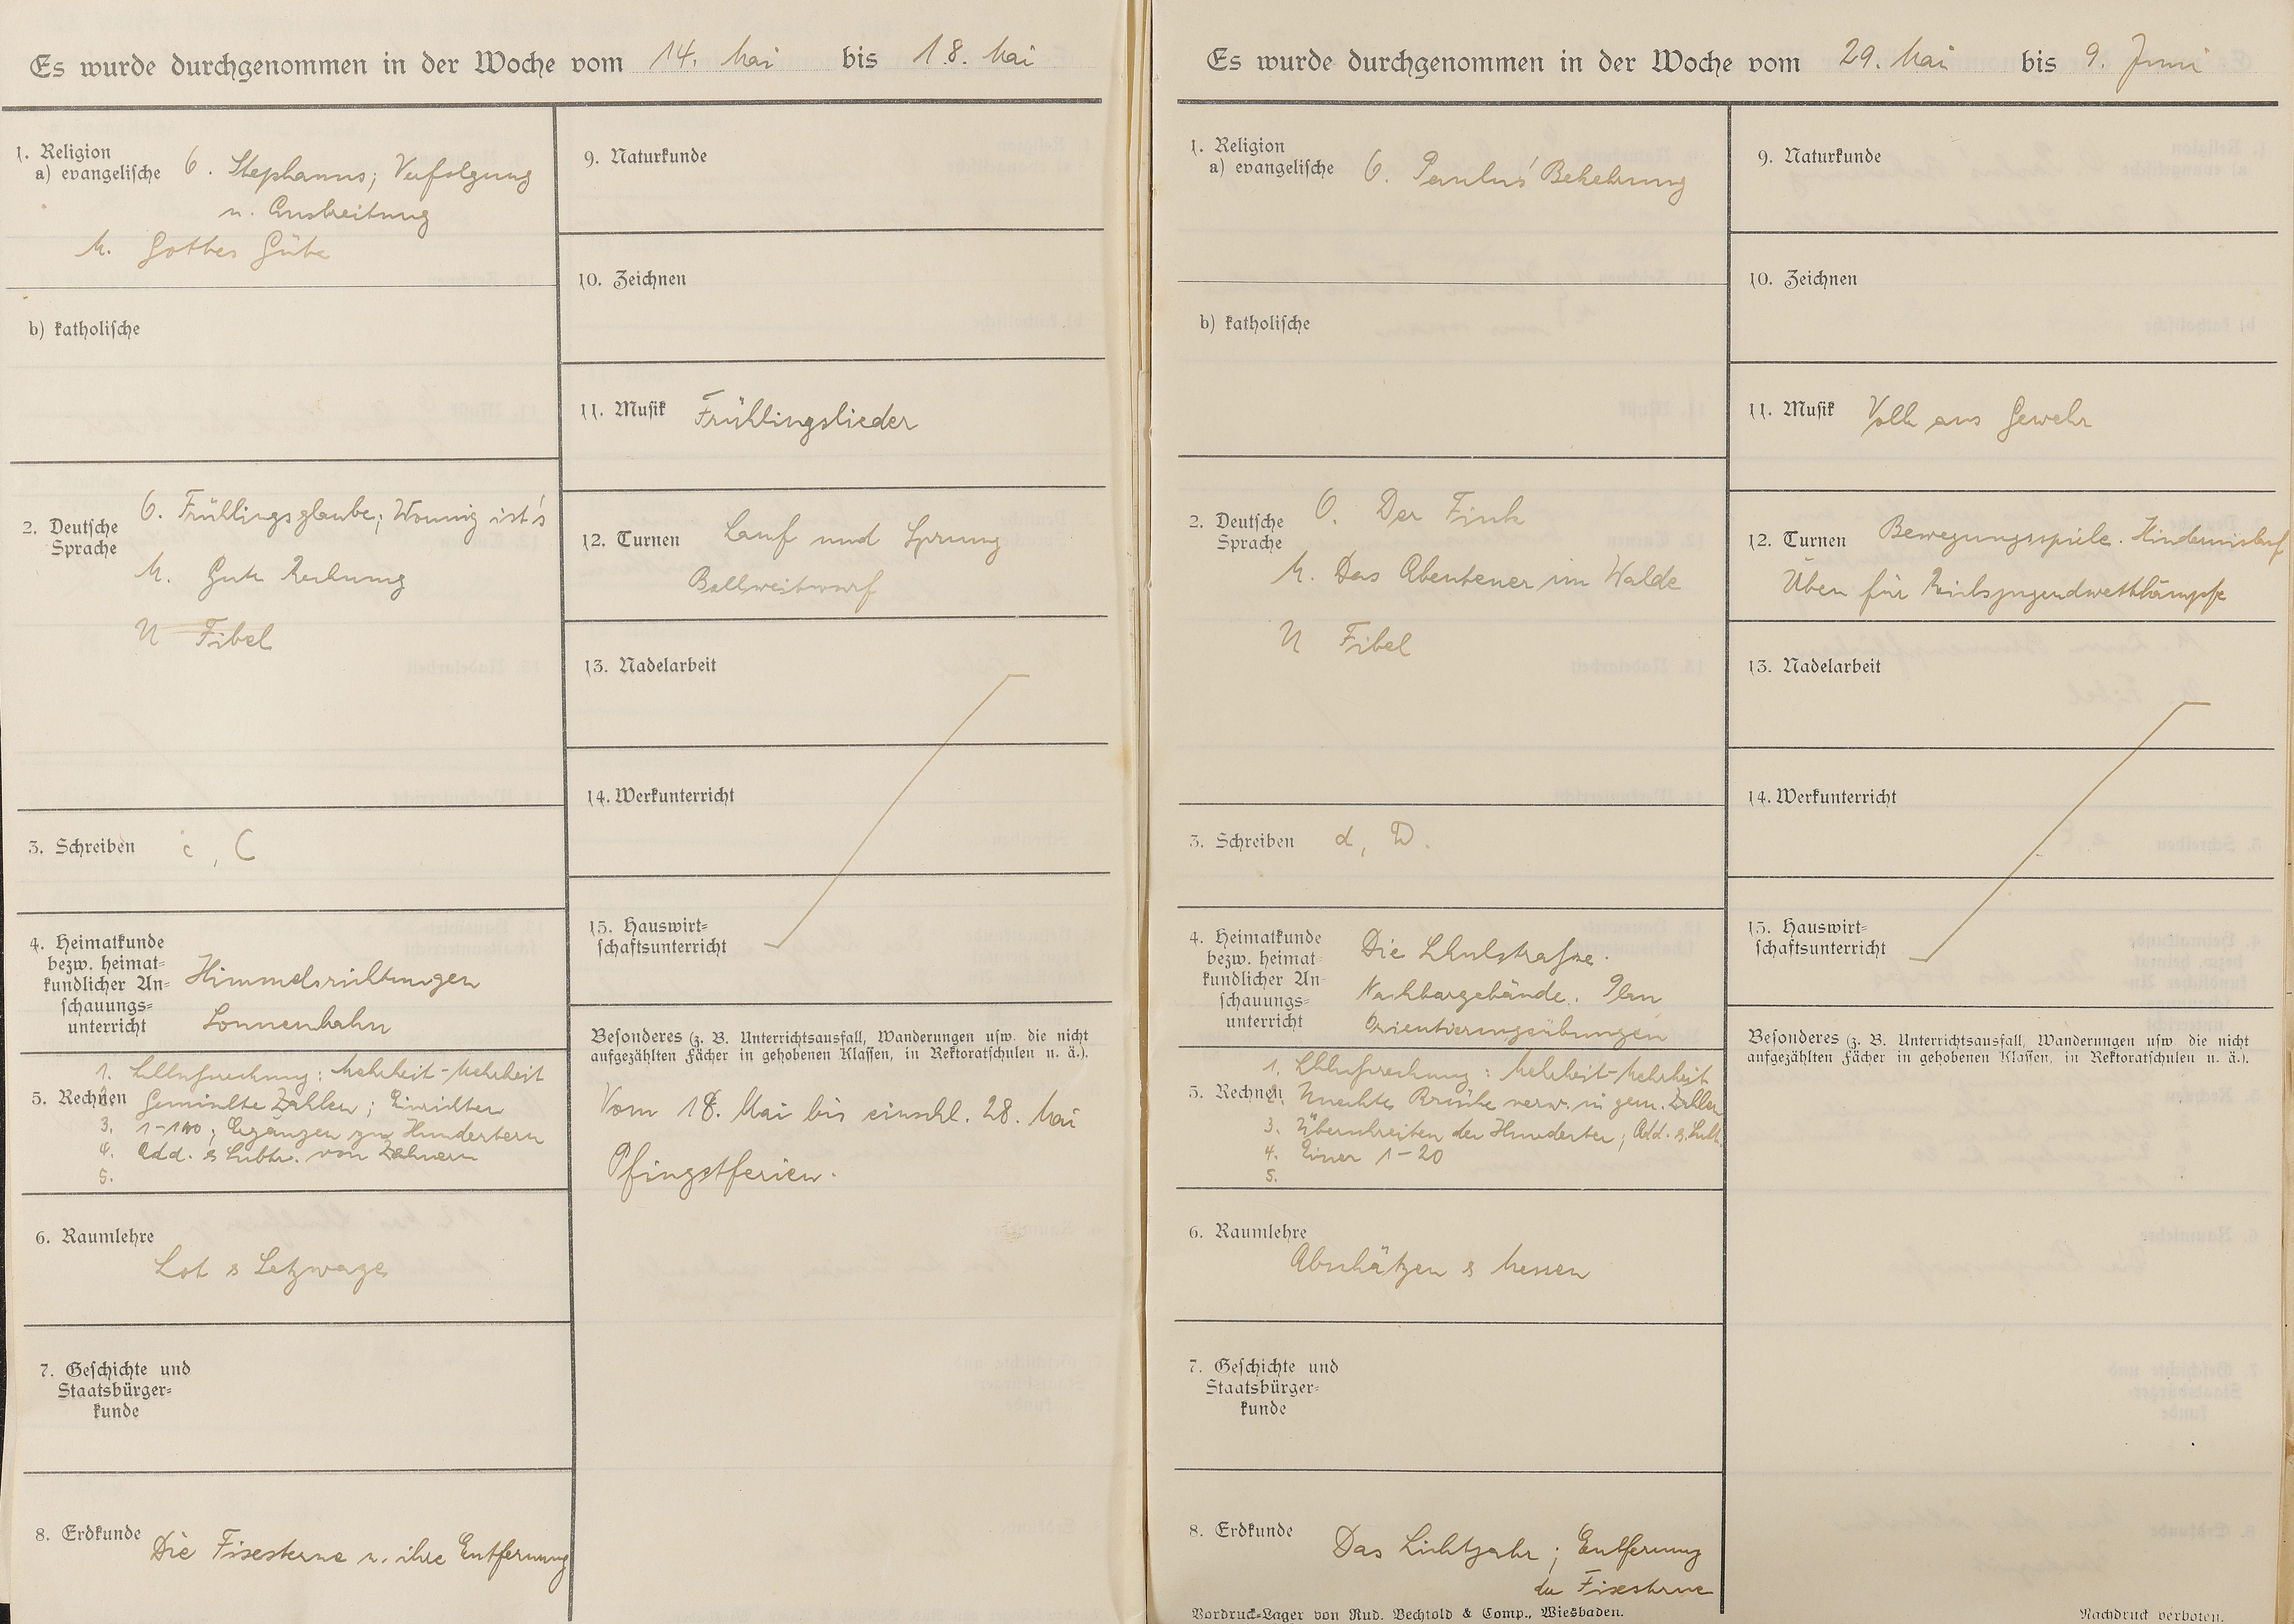 Es wurde durchgenommen in der Woche vom 14. Mai bis 18. Mai
1. Religion
a) evangelische O. Stephanus; Verfolgung
u. Ausbreitung
M. Gottes Güte
b) katholische
2. Deutsche
Sprache
O. Frühlingsglaube; Wonnig ist's
M. Gute Rechnung
U Fibel
3. Schreiben c, C
4. Heimatkunde
bezw. heimat-
kundlicher An-
schauungs-
unterricht
Himmelsrichtungen
Sonnenbahn
5. Rechnen
1. Schlußrechnung: Mehrheit-Mehrheit
2. Gemischte Zahlen; Einrichten
3. 1-100; Ergänzen zu Hundertern
4. Add. & Subtr. von Zehnern
5.
6. Raumlehre
Lot & Setzwage
7. Geschichte und
Staatsbürger-
kunde
8. Erdkunde Die Fixsterne u. ihre Entfernung
9. Naturkunde
10. Zeichnen
11. Musik Frühlingslieder
12. Turnen Lauf und Sprung
Ballweitwurf
13. Nadelarbeit
14. Werkunterricht
15. Hauswirt-
schaftsunterricht
Besonderes (z. B. Unterrichtsausfall, Wanderungen usw. die nicht
aufgezählten Fächer in gehobenen Klassen, in Rektoratschulen u. ä.).
Vom 18. Mai bis einschl. 28. Mai
Pfingstferien.
Es wurde durchgenommen in der Woche vom 29. Mai bis 9. Juni
1. Religion
a) evangelische O. Paulus' Bekehrung
b) katholische
2. Deutsche
Sprache
O. Der Fink
M. Das Abenteuer im Walde
U Fibel
3. Schreiben d, D.
4. Heimatkunde
bezw. heimat-
kundlicher An-
schauungs-
unterricht
Die Schulstraße.
Nachbargebäude. Plan
Orientierungsübungen
5. Rechnen
1. Schlußrechnung: Mehrheit-Mehrheit
2. Unechte Brüche verw. in gem. Zahlen
3. Überschreiten der Hunderter; Add. & Subt.
4. Einer 1-20
5.
6. Raumlehre
Abschätzen & Messen
7. Geschichte und
Staatsbürger-
kunde
8. Erdkunde Das Lichtjahr; Entfernung
der Fixsterne
Vordruck-Lager von Rud. Bechtold & Comp., Wiesbaden.
9. Naturkunde
10. Zeichnen
11. Musik Volk ans Gewehr
12. Turnen Bewegungsspiele. Hindernislauf
Üben für Reichsjugendwettkämpfe
13. Nadelarbeit
14. Werkunterricht
15. Hauswirt-
schaftsunterricht
Besonderes (z. B. Unterrichtsausfall, Wanderungen usw. die nicht
aufgezählten Fächer in gehobenen Klassen, in Rektoratschulen u. ä.).
Nachdruck verboten.